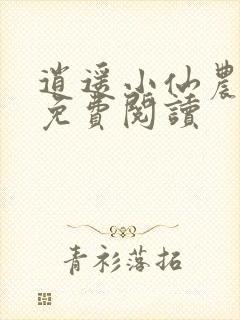 逍遥小仙農
免費閱讀
青衫落拓